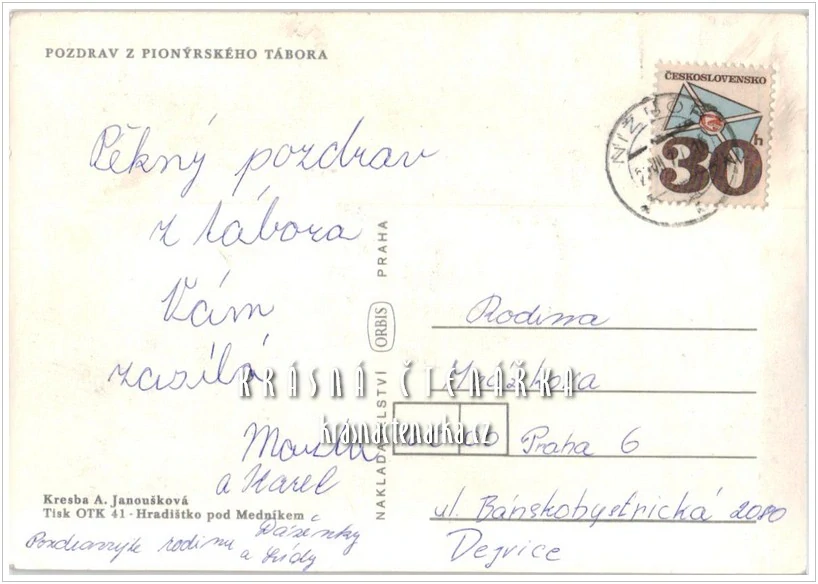 POZDRAV Z PIONÝRSKÉHO TÁBORA
ČESKOSLOVENSKO
30h
NIŽBOR
Pěkný pozdrav
z tábora
Vám
zasílá
a Karel
Kresba A. Janoušková
Tisk OTK 41 - Hradištko pod Medníkem
Pozdravujte rodinu
a Lídy
NAKLADATELSTVÍ ORBIS PRAHA
Rodina
Praha 6
ul. Bánskobystrická 2080
Dejvice
KRÁSNÁ ČTENÁŘKA
krasnactenarka.cz